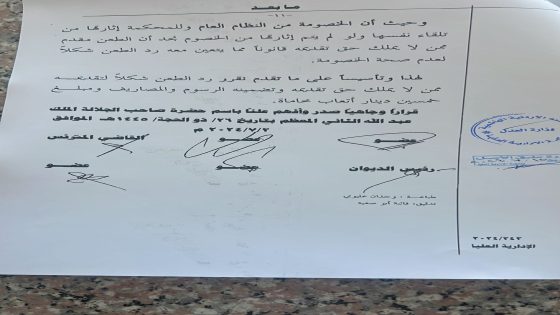 ما بعد
-١١-
وحيث أن الخصومة من النظام العام وللمحكمة إثارتها من
تلقاء نفسها ولو لم يتم إثارتها من الخصوم نجد أن الطعن مقدم
ممن لا يملك حق تقديمه قانوناً مما يتعين معه رد الطعن شكلاً
لعدم صحة الخصومة.
لهذا وتأسيساً على ما تقدم نقرر رد الطعن شكلاً لتقديمه
ممن لا يملك حق تقديمه وتضمينه الرسوم والمصاريف ومبلغ
خمسين دينار أتعاب محاماة.
قراراً وجاهياً صدر وأفهم علناً باسم حضرة صاحب الجلالة الملك
عبد الله الثاني المعظم بتاريخ ٢٦/ ذو الحجة/ ١٤٤٥هـ الموافق
٢٠٢٤/٧/٢ م
عضو عضو القاضي المترئس
رئيس الديوان عضو عضو
طباعة :
تدقيق:
٢٠٢٤/٢٤٢
الإدارية العليا